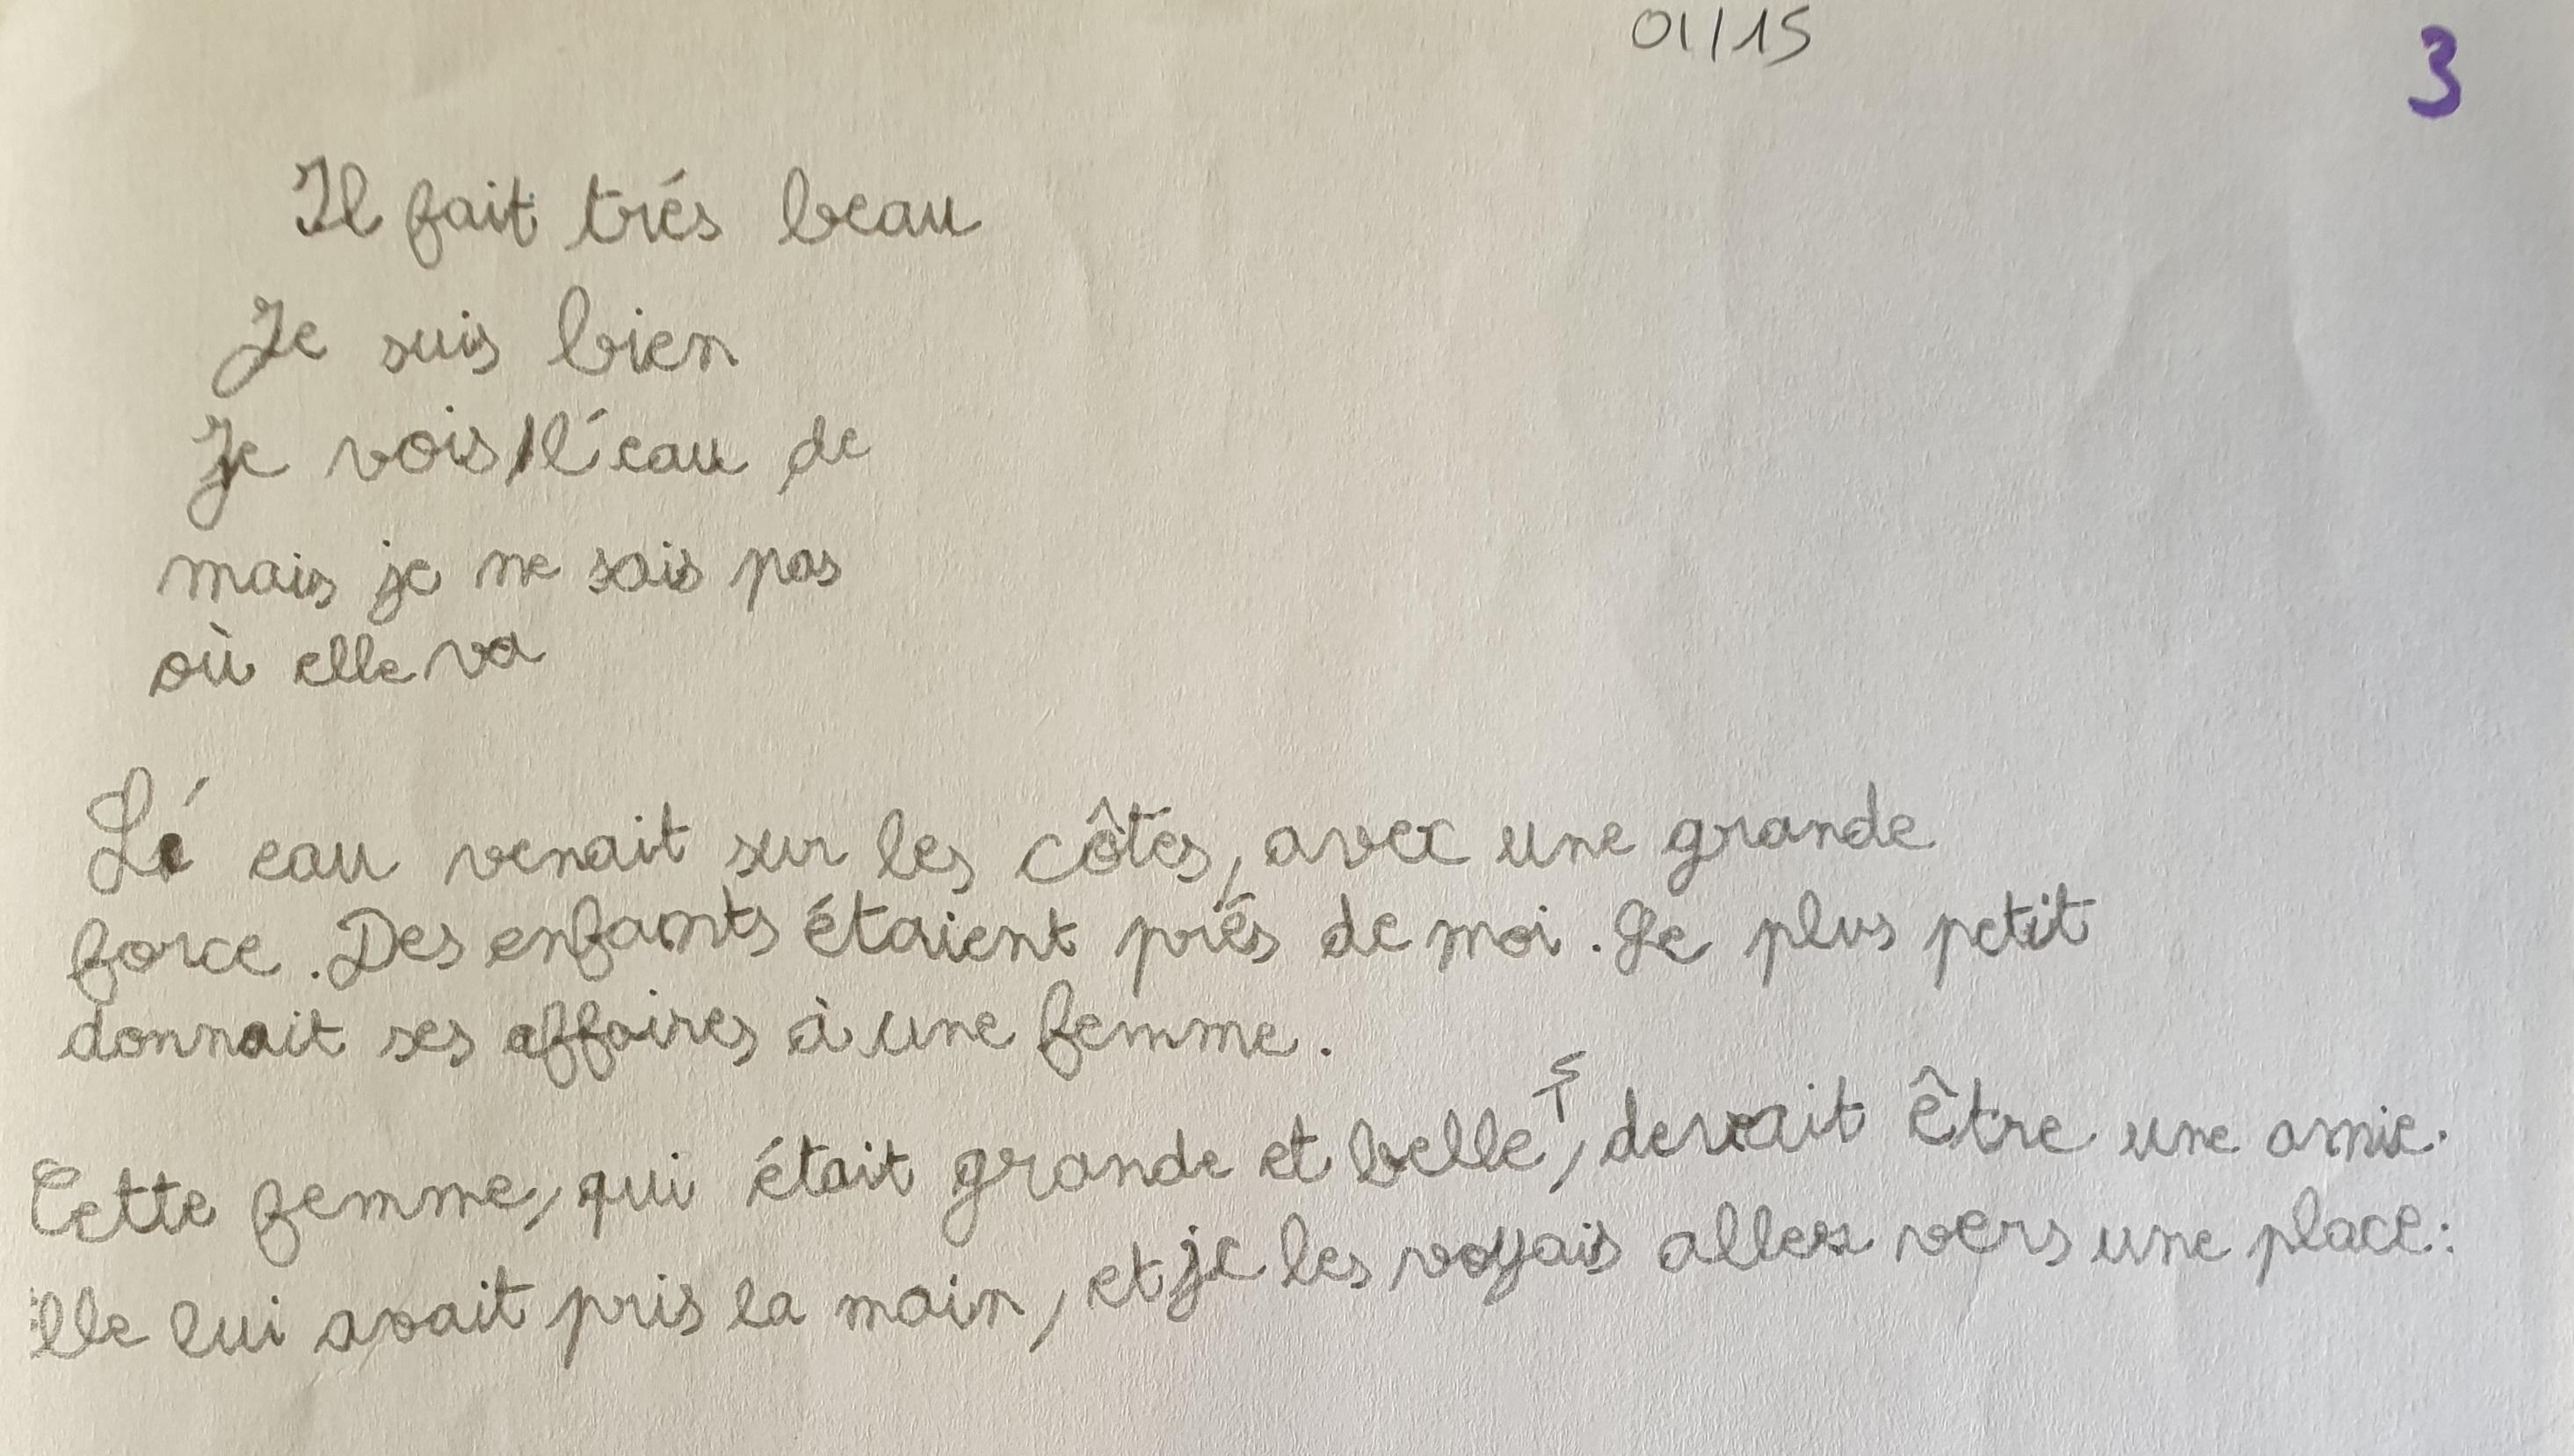 01/15
3
Il fait trés beau
Je suis bien
Je vois l'eau de
mais je ne sais pas
où elle va
L' eau venait sur les côtes, avec une grande
force. Des enfants étaient prés de moi. Le plus petit
donnait ses affaires à une femme.
Cette femme, qui était grande et belle, devait être une amie.
Elle lui avait pris la main, et je les voyais aller vers une place.